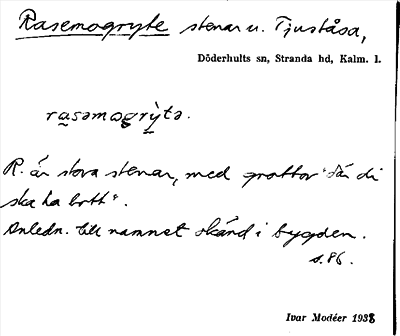 Rasemogryte stenar u. Tjuståsa,
Döderhults sn, Stranda hd, Kalm. l.
rasəmogrỳtə.
R. är stora stenar, med grottor "där di
ska ha bott".
Anledn. till namnet okänd i bygden.
s. 86.
Ivar Modéer 1938